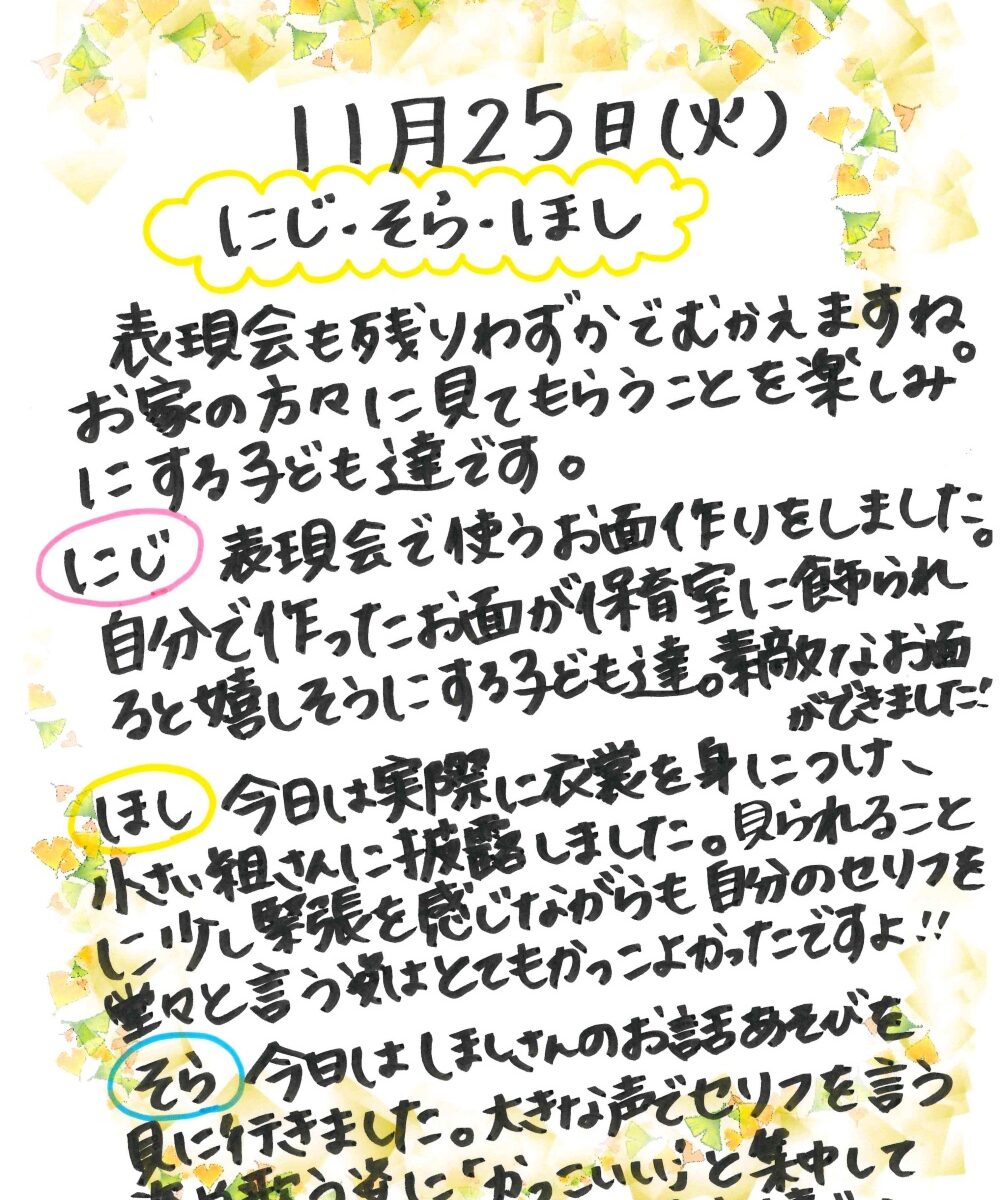 11月25日(火)
にじ・そら・ほし
表現会も残りわずかでむかえますね。
お家の方々に見てもらうことを楽しみ
にする子ども達です。
にじ 表現会で使うお面作りをしました。
自分で作ったお面が保育室に飾られ
ると嬉しそうにする子ども達。素敵なお面
ができました!
ほし 今日は実際に衣裳を身につけ、
小さい組さんに披露しました。見られること
に少し緊張を感じながらも自分のセリフを
堂々と言う姿はとてもかっこよかったですよ!!
そら 今日はほしさんのお話あそびを
見に行きました。大きな声でセリフを言う
歌う姿に「かっこいい」と集中して